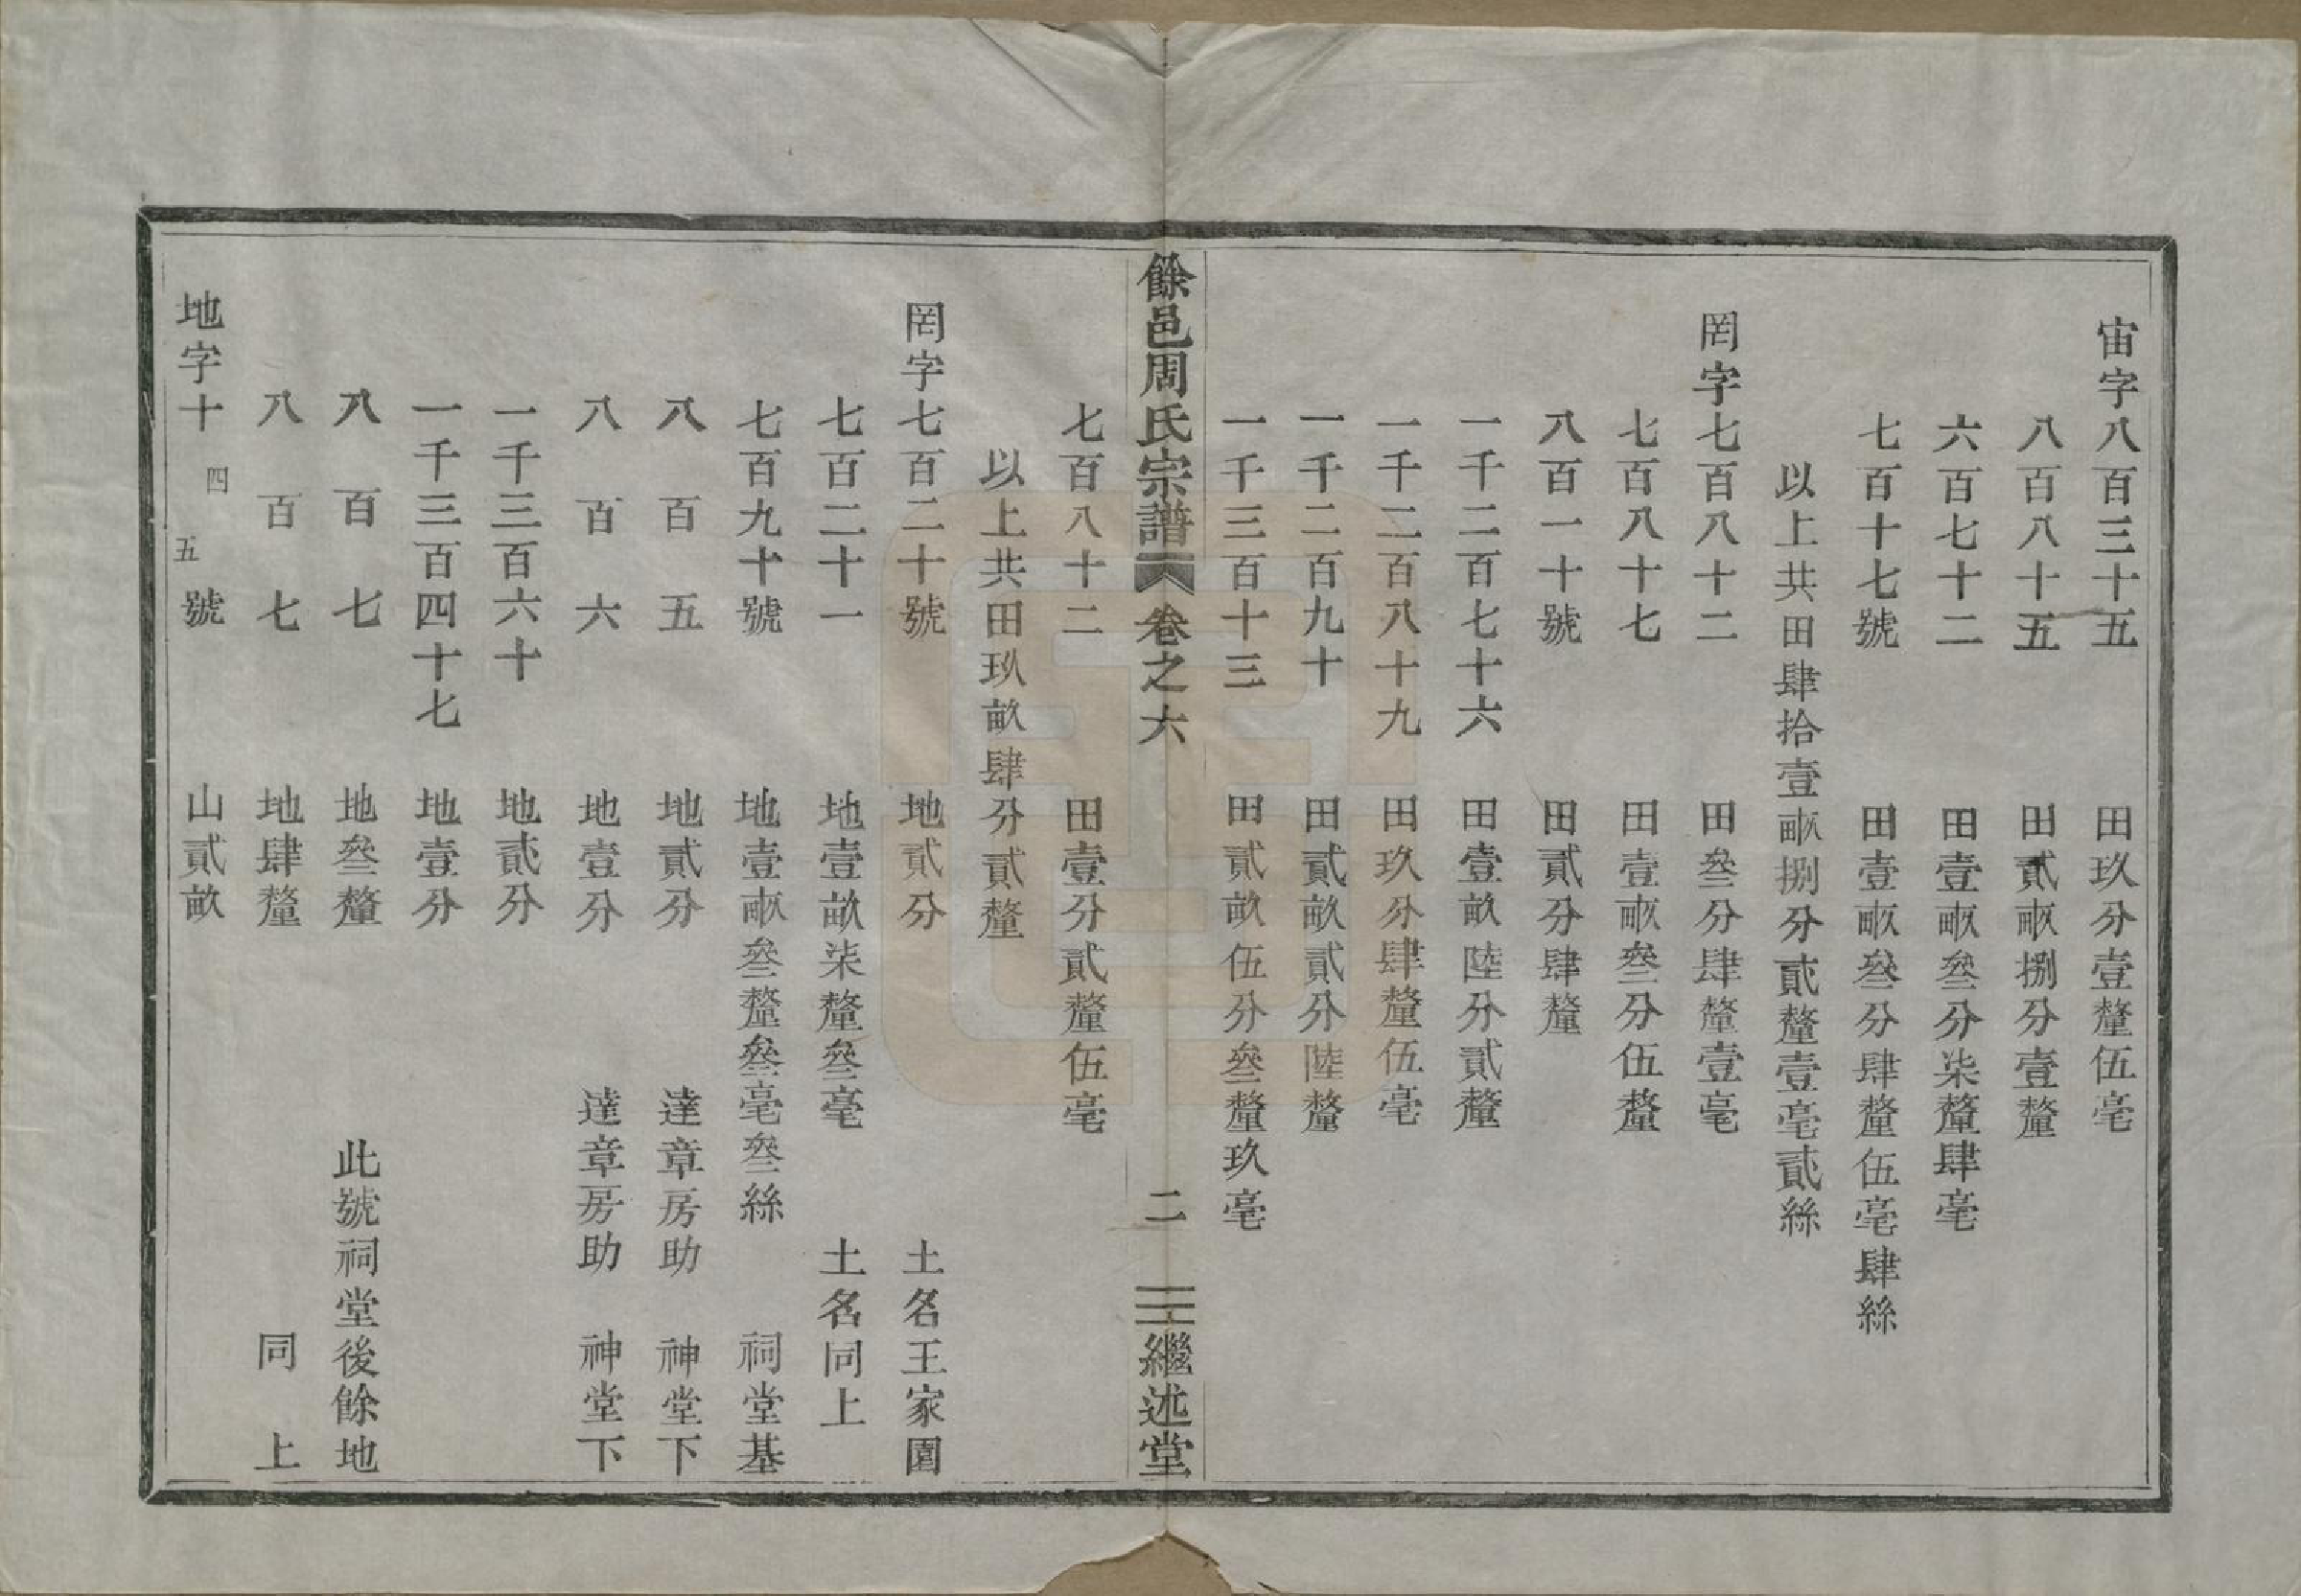 宙字八百三十五　田玖分壹釐伍毫
八百八十五　田貳畞捌分壹釐
六百七十二　田壹畞叄分柒釐肆毫
七百十七號　田壹畞叄分肆釐伍毫肆絲
以上共田肆拾壹畞捌分貳釐壹毫貳絲
罔字七百八十二　田叄分肆釐壹毫
七百八十七　田壹畞叄分伍釐
八百一十號　田貳分肆釐
一千二百七十六　田壹畝陸分貳釐
一千二百八十九　田玖分肆釐伍毫
一千二百九十　田貳畝貳分陸釐
一千三百十三　田貳畝伍分叄釐玖毫
餘邑周氏宗譜　卷之六　二　繼述堂
七百八十二　田壹分貳釐伍毫
以上共田玖畝肆分貳釐
罔字七百二十號　地貳分　土名王家園
七百二十一　地壹畝柒釐叄毫　土名同上
七百九十號　地壹畞叄釐叄毫叄絲　祠堂基
八百五　地貳分　達章房助　神堂下
八百六　地壹分　達章房助　神堂下
一千三百六十　地貳分
一千三百四十七　地壹分
八百七　地叄釐　此號祠堂後餘地
八百七　地肆釐　同上
地字十四五號　山貳畝